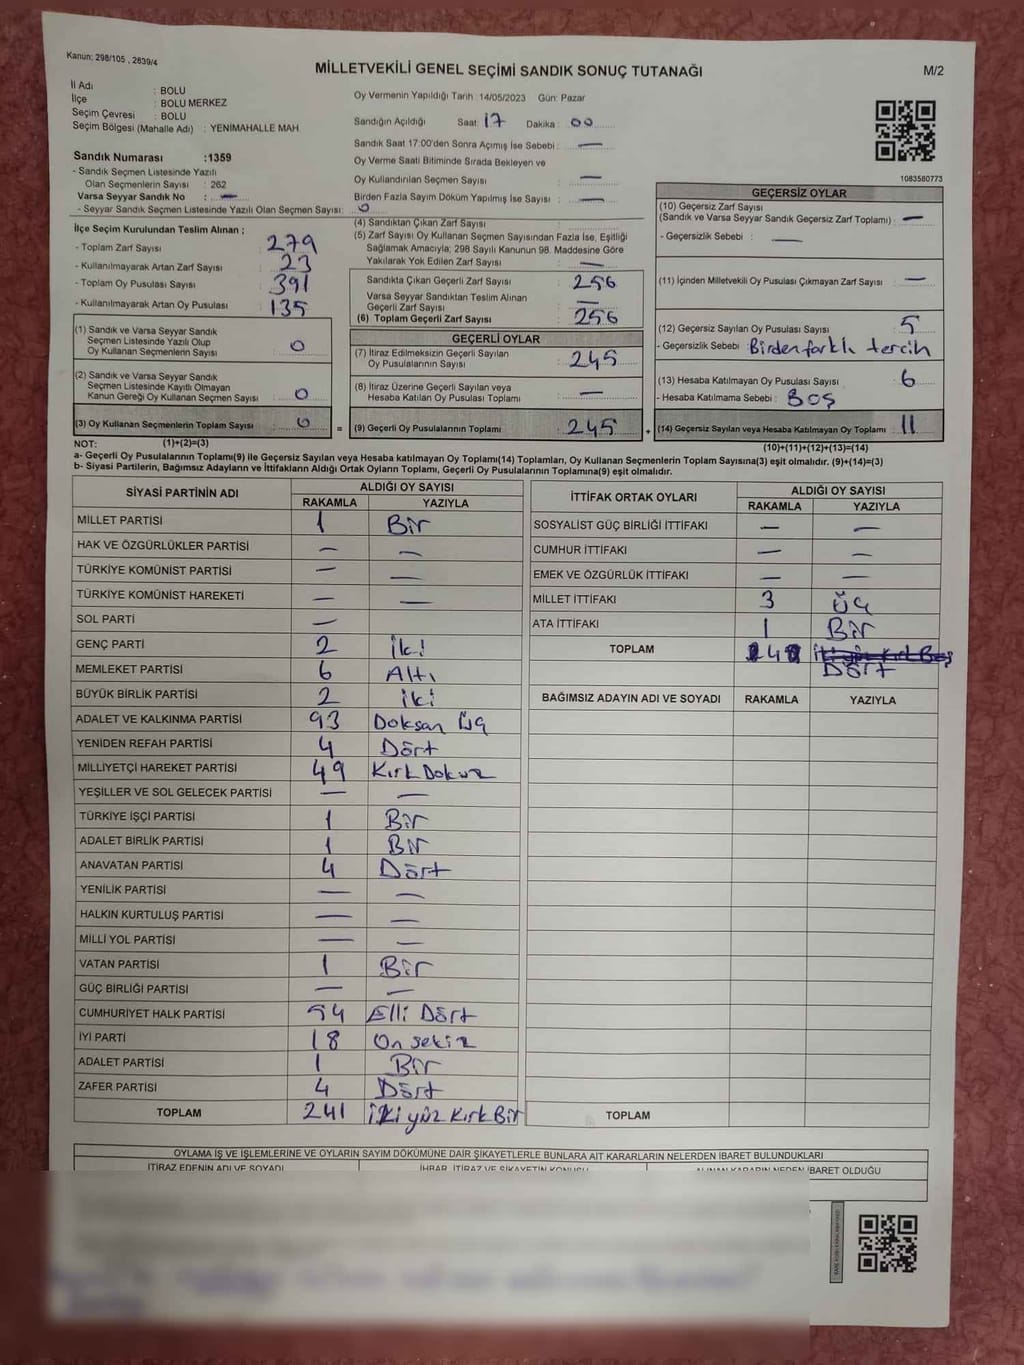 Kanun: 298/105 , 2839/4
MİLLETVEKİLİ GENEL SEÇİMİ SANDIK SONUÇ TUTANAĞI
M/2
İl Adı : BOLU
İlçe : BOLU MERKEZ
Seçim Çevresi : BOLU
Seçim Bölgesi (Mahalle Adı) : YENİMAHALLE MAH.
Sandık Numarası :1359
- Sandık Seçmen Listesinde Yazılı
Olan Seçmenlerin Sayısı : 262
Varsa Seyyar Sandık No : —
- Seyyar Sandık Seçmen Listesinde Yazılı Olan Seçmen Sayısı: 0
Oy Vermenin Yapıldığı Tarih :14/05/2023 Gün: Pazar
Sandığın Açıldığı Saat: 17 Dakika : 00
Sandık Saat 17:00'den Sonra Açımış İse Sebebi : —
Oy Verme Saati Bitiminde Sırada Bekleyen ve
Oy Kullandırılan Seçmen Sayısı : —
Birden Fazla Sayım Döküm Yapılmış İse Sayısı : —
1083580773
İlçe Seçim Kurulundan Teslim Alınan ;
- Toplam Zarf Sayısı : 279
- Kullanılmayarak Artan Zarf Sayısı : 23
- Toplam Oy Pusulası Sayısı : 391
- Kullanılmayarak Artan Oy Pusulası : 135
(1) Sandık ve Varsa Seyyar Sandık
Seçmen Listesinde Yazılı Olup
Oy Kullanan Seçmenlerin Sayısı : 0
(2) Sandık ve Varsa Seyyar Sandık
Seçmen Listesinde Kayıtlı Olmayan
Kanun Gereği Oy Kullanan Seçmen Sayısı : 0
(3) Oy Kullanan Seçmenlerin Toplam Sayısı : 0
(4) Sandıktan Çıkan Zarf Sayısı :
(5) Zarf Sayısı Oy Kullanan Seçmen Sayısından Fazla İse, Eşitliği
Sağlamak Amacıyla; 298 Sayılı Kanunun 98. Maddesine Göre
Yakılarak Yok Edilen Zarf Sayısı : —
Sandıkta Çıkan Geçerli Zarf Sayısı : 256
Varsa Seyyar Sandıktan Teslim Alınan
Geçerli Zarf Sayısı : —
(6) Toplam Geçerli Zarf Sayısı : 256
GEÇERLİ OYLAR
(7) İtiraz Edilmeksizin Geçerli Sayılan
Oy Pusulalarının Sayısı : 245
(8) İtiraz Üzerine Geçerli Sayılan veya
Hesaba Katılan Oy Pusulası Toplamı : —
= (9) Geçerli Oy Pusulalarının Toplamı : 245
GEÇERSİZ OYLAR
(10) Geçersiz Zarf Sayısı
(Sandık ve Varsa Seyyar Sandık Geçersiz Zarf Toplamı) : —
- Geçersizlik Sebebi : —
(11) İçinden Milletvekili Oy Pusulası Çıkmayan Zarf Sayısı : —
(12) Geçersiz Sayılan Oy Pusulası Sayısı : 5
- Geçersizlik Sebebi : Birden farklı tercih
(13) Hesaba Katılmayan Oy Pusulası Sayısı : 6
- Hesaba Katılmama Sebebi : Boş
+ (14) Geçersiz Sayılan veya Hesaba Katılmayan Oy Toplamı : 11
NOT: (1)+(2)=(3)
(10)+(11)+(12)+(13)=(14)
a- Geçerli Oy Pusulasının Toplamı(9) ile Geçersiz Sayılan veya Hesaba katılmayan Oy Toplamı(14) Toplamları, Oy Kullanan Seçmenlerin Toplam Sayısına(3) eşit olmalıdır. (9)+(14)=(3)
b- Siyasi Partilerin, Bağımsız Adayların ve İttifakların Aldığı Ortak Oyların Toplamı, Geçerli Oy Pusulalarının Toplamına(9) eşit olmalıdır.
SİYASİ PARTİNİN ADI
ALDIĞI OY SAYISI
RAKAMLA YAZIYLA
MİLLET PARTİSİ 1 Bir
HAK VE ÖZGÜRLÜKLER PARTİSİ — —
TÜRKİYE KOMÜNİST PARTİSİ — —
TÜRKİYE KOMÜNİST HAREKETİ — —
SOL PARTİ —
GENÇ PARTİ 2 İki
MEMLEKET PARTİSİ 6 Altı
BÜYÜK BİRLİK PARTİSİ 2 iki
ADALET VE KALKINMA PARTİSİ 93 Doksan Üç
YENİDEN REFAH PARTİSİ 4 Dört
MİLLİYETÇİ HAREKET PARTİSİ 49 Kırk Dokuz
YEŞİLLER VE SOL GELECEK PARTİSİ — —
TÜRKİYE İŞÇİ PARTİSİ 1 Bir
ADALET BİRLİK PARTİSİ 1 Bir
ANAVATAN PARTİSİ 4 Dört
YENİLİK PARTİSİ — —
HALKIN KURTULUŞ PARTİSİ — —
MİLLİ YOL PARTİSİ — —
VATAN PARTİSİ 1 Bir
GÜÇ BİRLİĞİ PARTİSİ — —
CUMHURİYET HALK PARTİSİ 54 Elli Dört
İYİ PARTİ 18 On sekiz
ADALET PARTİSİ 1 Bir
ZAFER PARTİSİ 4 Dört
TOPLAM 241 İki yüz Kırk Bir
İTTİFAK ORTAK OYLARI
ALDIĞI OY SAYISI
RAKAMLA YAZIYLA
SOSYALİST GÜÇ BİRLİĞİ İTTİFAKI — —
CUMHUR İTTİFAKI — —
EMEK VE ÖZGÜRLÜK İTTİFAKI — —
MİLLET İTTİFAKI 3 Üç
ATA İTTİFAKI 1 Bir
TOPLAM İki yüz Kırk Beş
Dört
BAĞIMSIZ ADAYIN ADI VE SOYADI RAKAMLA YAZIYLA
TOPLAM
OYLAMA İŞ VE İŞLEMLERİNE VE OYLARIN SAYIM DÖKÜMÜNE DAİR ŞİKAYETLERLE BUNLARA AİT KARARLARIN NELERDEN İBARET BULUNDUKLARI
İTİRAZ EDENİN ADI VE SOYADI İHBAR, İTİRAZ VE ŞİKAYETİN KONUSU ALINAN KARARIN NEDEN İBARET OLDUĞU